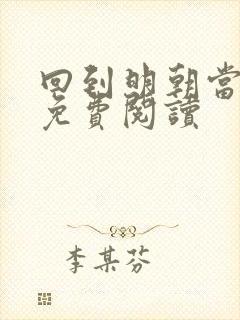 回到明朝當
免費閱讀
李某芬